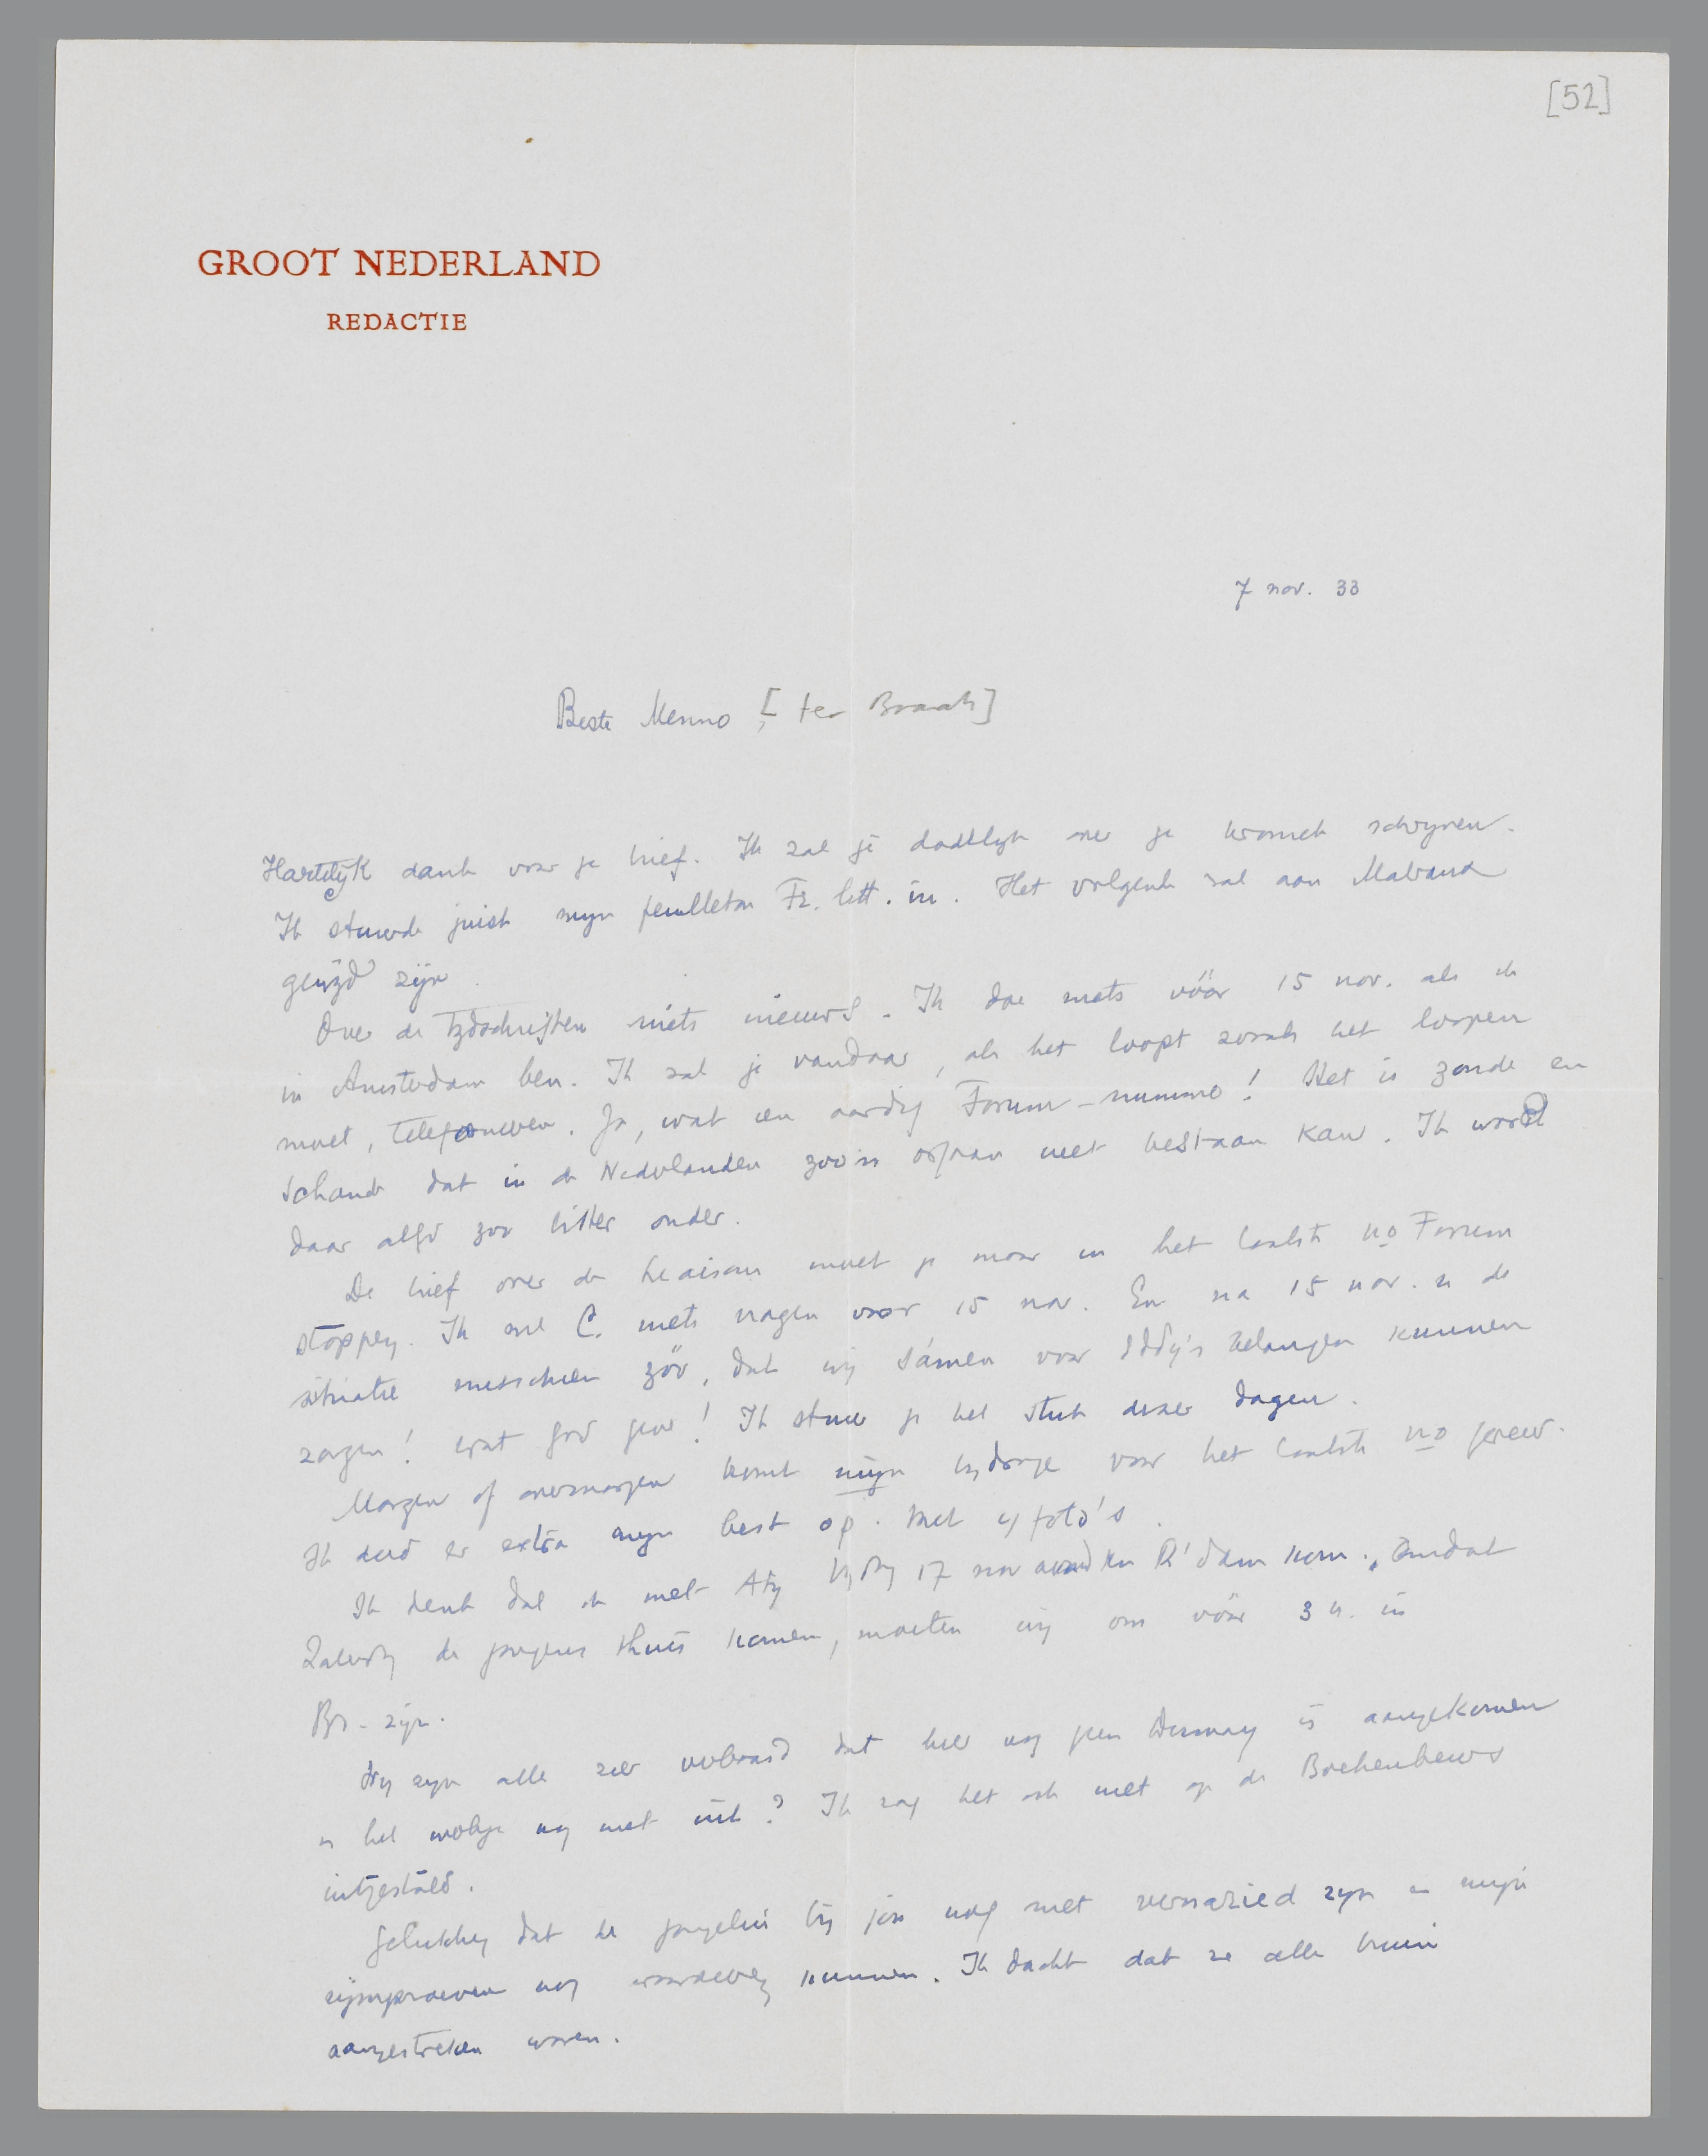 [52]
GROOT NEDERLAND
REDACTIE
7 nov. 33
Beste Menno [ter Braak]
Hartelijk dank voor je brief. Ik zal je dadelijk over je kroniek schrijven.
Ik stuurde juist mijn feuilleton Fr. lett. in. Het volgende zal aan Malraux
gewijd zijn.
Over de tijdschriften niets nieuws. Ik doe niets vóór 15 nov. als ik
in Amsterdam ben. Ik zal je vandaar, als het loopt zooals het loopen
moet, telefoneeren. Ja, wat een aardig Forum-nummer! Het is zonde en
schande dat in de Nederlanden zoo'n orgaan niet bestaan kan. Ik word
daar altijd zoo bitter onder.
De brief over de liaisons moet je maar in het laatste no Forum
stoppen. Ik wil C. niets vragen voor 15 nov. En na 15 nov. is de
situatie misschien zóó, dat wij sámen voor Eddy's belangen kunnen
zorgen! Wat God geve! Ik stuur je het stuk dezer dagen.
Morgen of overmorgen komt mijn bijdrage voor het laatste no
Ik deed er extra mijn best op. Met foto's.
Ik denk dat ik met Aty vrijdag 17 nov avond in R'dam kom. Omdat
Zaterdag de jongens thuis komen, moeten wij om vóór 3 u. in
Br. zijn.
Wij zijn alle zeer verbaasd dat hier nog geen Dumay is aangekomen
is het werkje nog niet uit? Ik zag het ook niet op de Boekenbeurs
uitgestald.
Gelukkig dat de jongelui bij jou nog niet vernazied zijn en mijn
rijmproeven nog waardeeren kunnen. Ik dacht dat ze alle bruin
aangestreken waren.